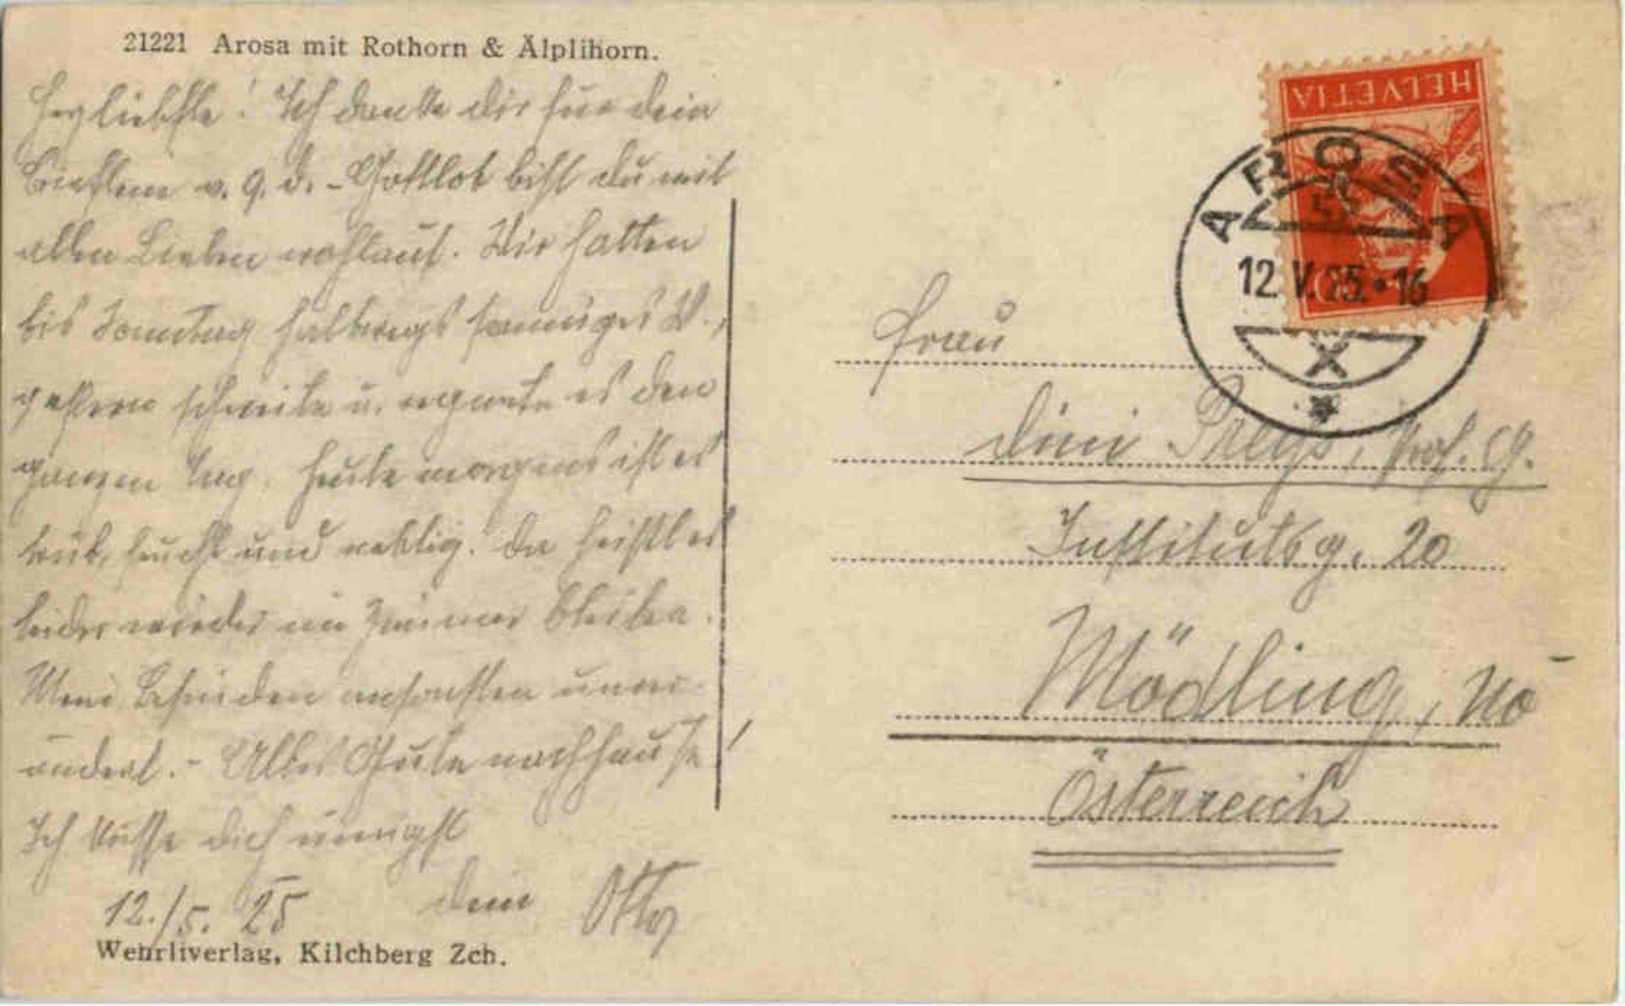 21221 Arosa mit Rothorn & Älplihorn.
Herzliebste! Ich danke dir für dein
Brieflein v. 9. d. - Gottlob bist du mit
allen Lieben wohlauf. Wir hatten
bis Sonntag halbwegs sonniges W.,
gestern schneite u. regnete es den
ganzen Tag. Heute morgens ist es
trüb, feucht und neblig. Da heißt es
leider wieder im Zimmer bleiben.
Mein Befinden ansonsten unver-
ändert. - Alles Gute nachhause!
Ich küsse dich innigst
12./5. 25 dein Otto
Wehrliverlag, Kilchberg Zch.
HELVETIA
AROSA
12.V.25.•16
Frau
Prof. G.
Institutsg. 20
Mödling, NÖ
Österreich